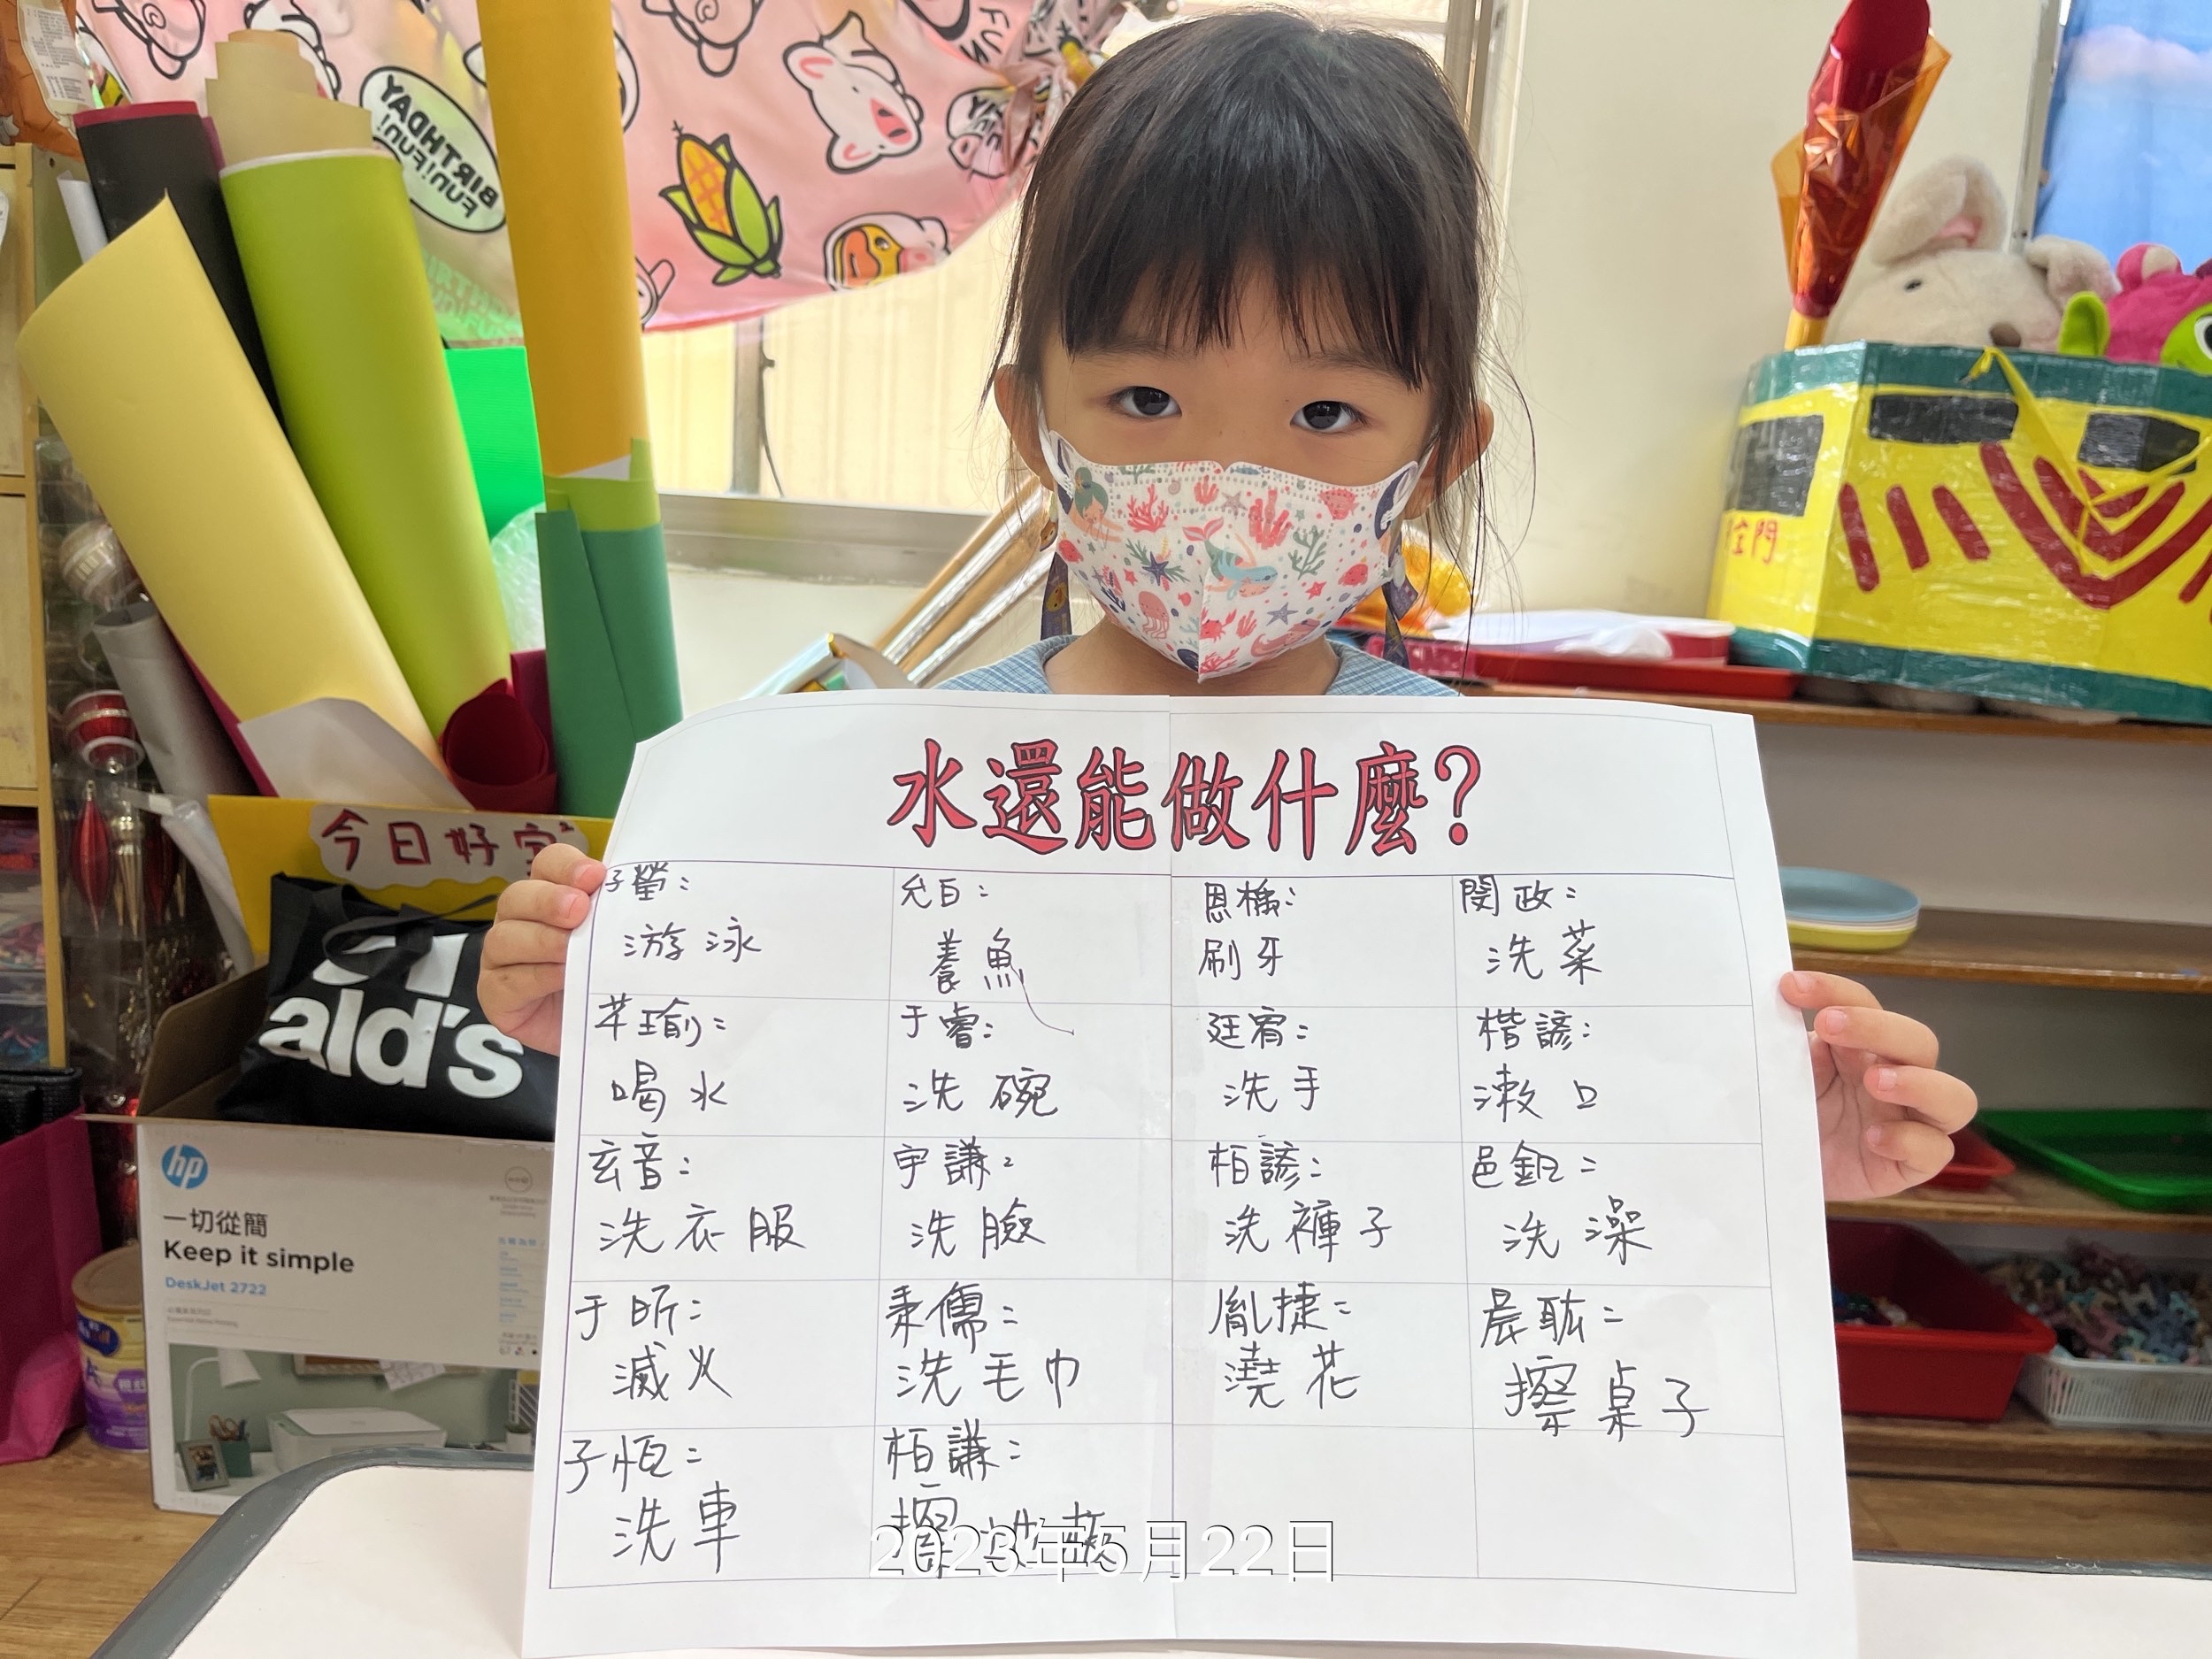 BIRTHDAY
FUN!FUN!
FUN
全門
今日好
ald's
hp
一切從簡
Keep it simple
DeskJet 2722
水還能做什麼?
子螢:
游泳
允白:
養魚
恩橋:
刷牙
閔政:
洗菜
苹瑜:
喝水
于睿:
洗碗
廷宥:
洗手
楷諺:
漱口
玄音:
洗衣服
宇謙:
洗臉
柏諺:
洗褲子
邑鈤:
洗澡
于昕:
滅火
秉儒:
洗毛巾
胤捷:
澆花
晨耾:
擦桌子
子恆:
洗車
柏謙:
擦
2023年5月22日